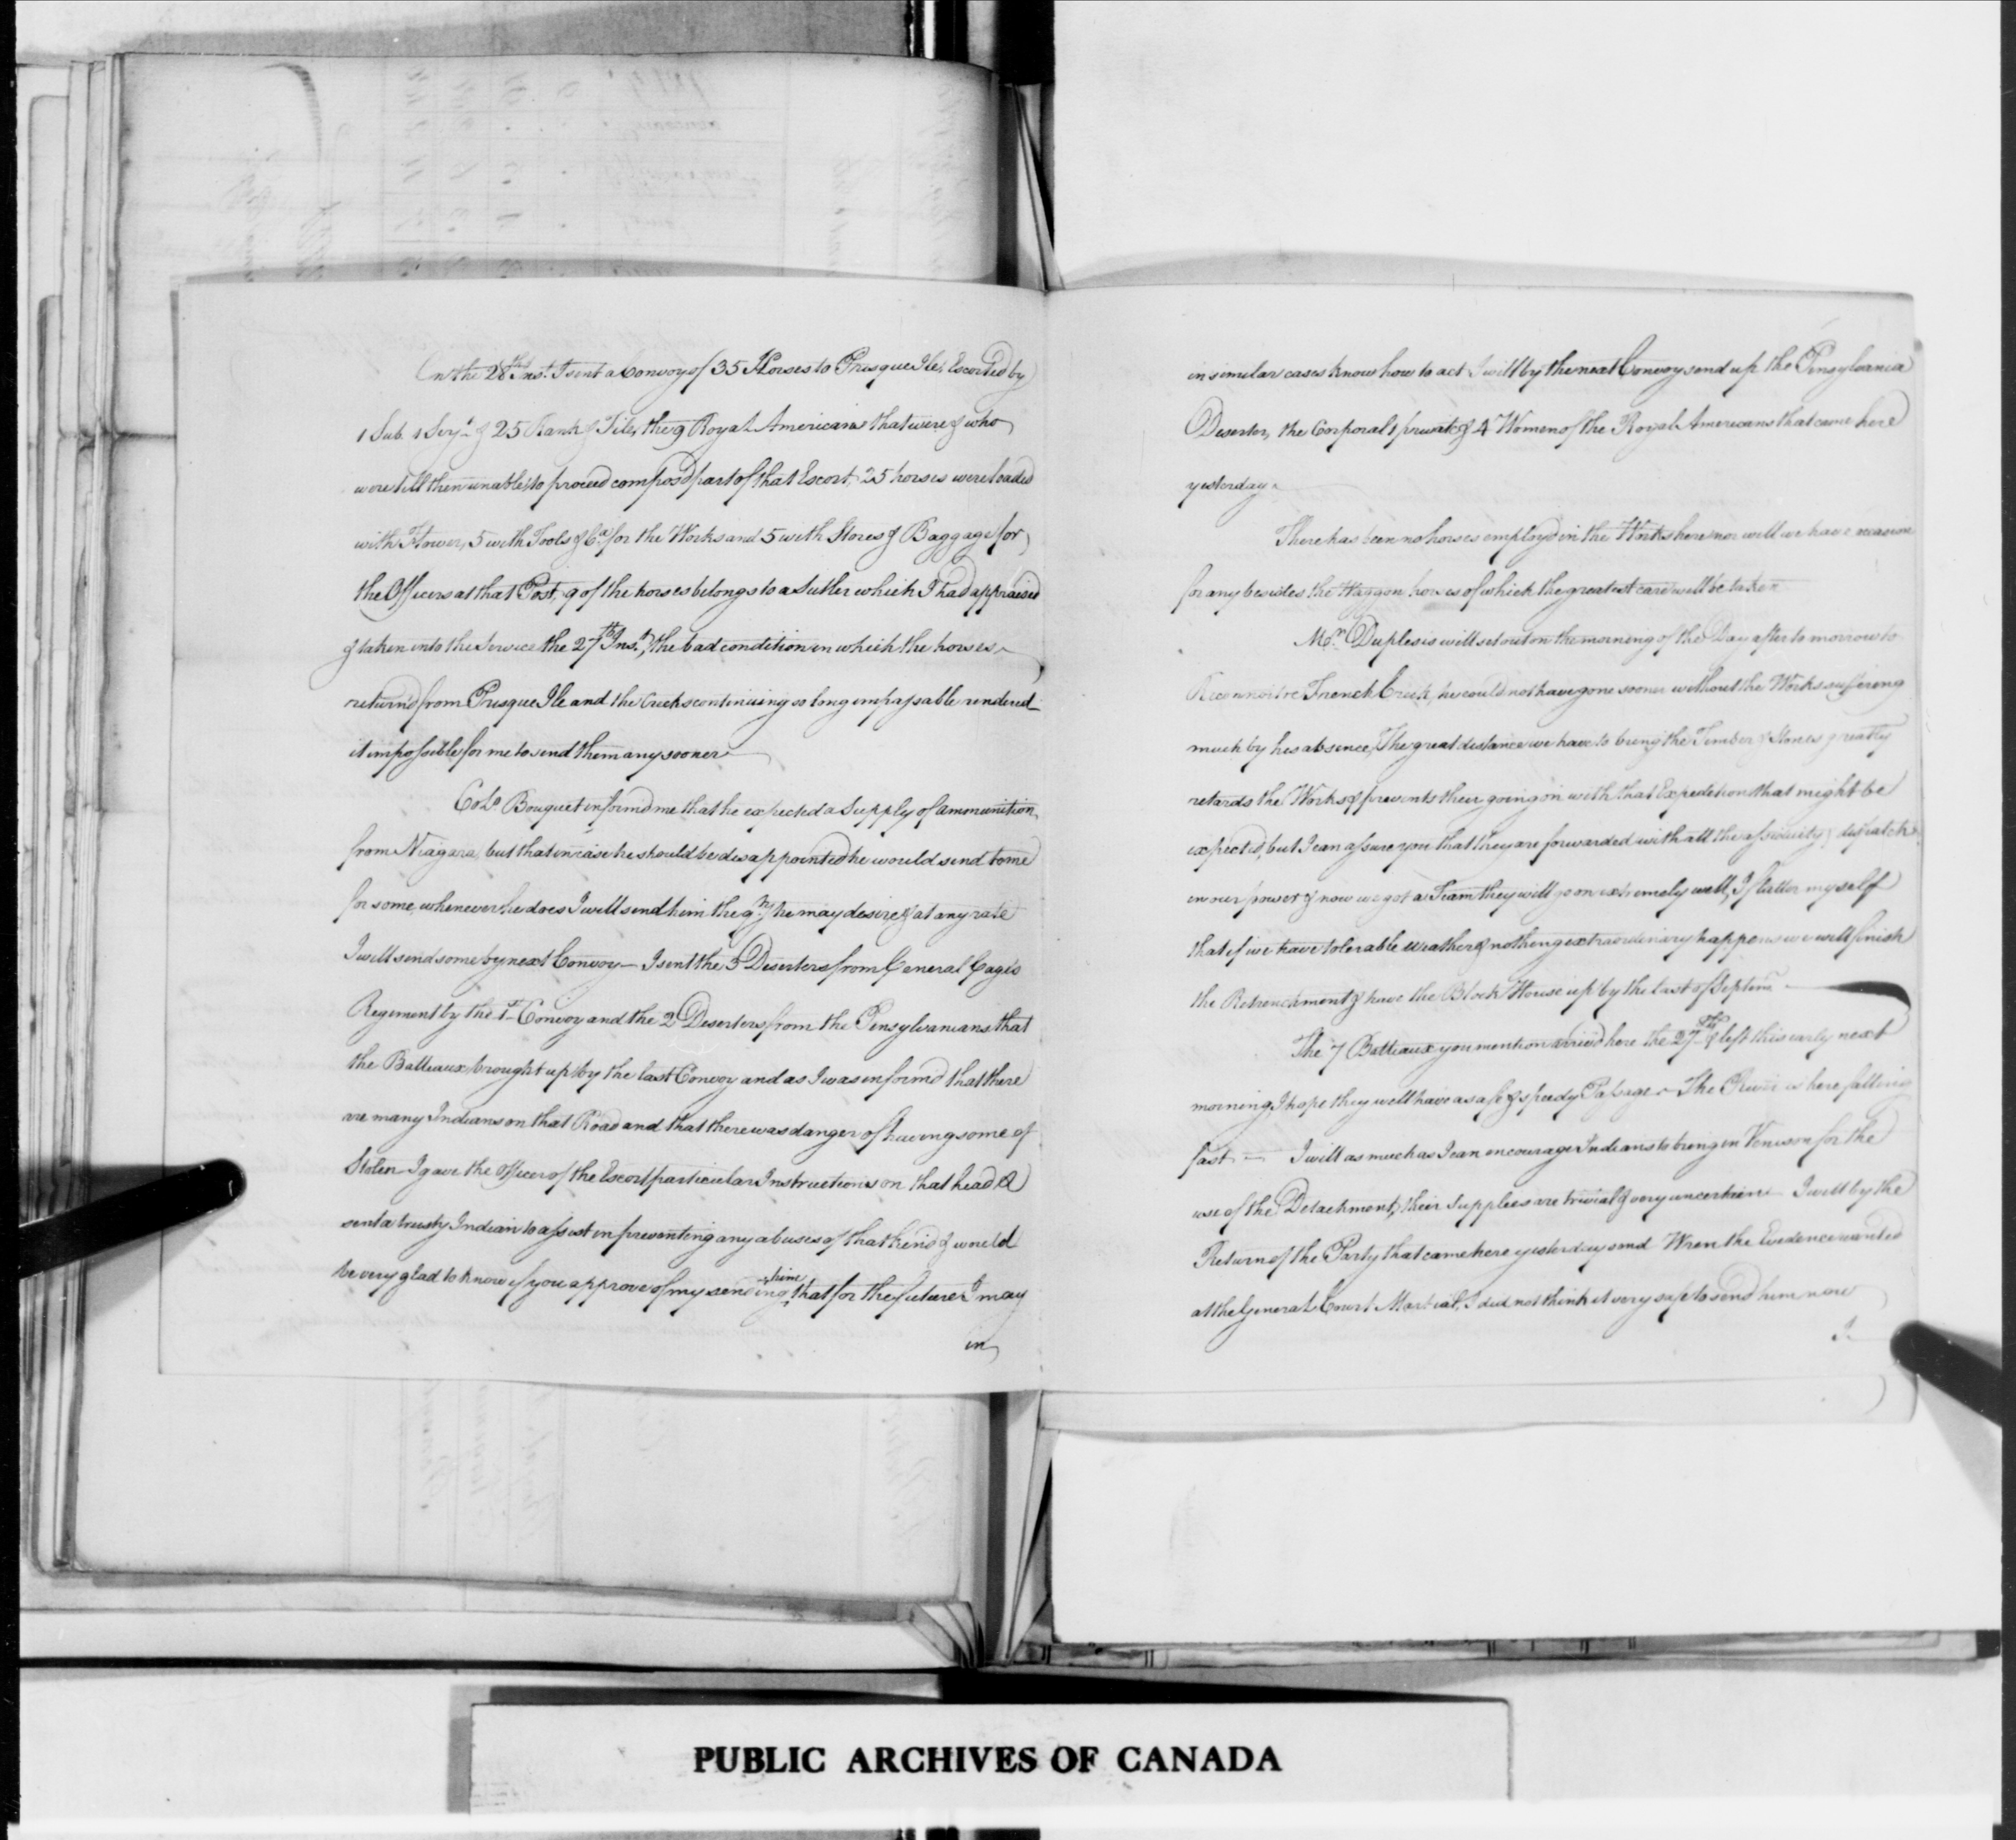 On the 28th Inst. I sent a Convoy of 35 Horses to Presque Ile, Escorted by
1 Sub. 1 Serjt. & 25 Rank & File, the 9 Royal Americans that were & who
were till then unable to proceed compos'd part of that Escort, 25 horses were loaded
with Flower, 5 with Tools &ca. for the Works and 5 with Stores & Baggage for
the Officers at that Post, 9 of the horses belongs to a Sutler which I had appraised
& taken into the Service the 27th Inst., the bad condition in which the horses
return'd from Presque Ile and the Creeks continuing so long impassable rendered
it impossible for me to send them any sooner
Colo. Bouquet inform'd me that he expected a Supply of amonunition
from Niagara, but that in case he should be disappointed he would send to me
for some, whenever he does I will send him the qty. he may desire & at any rate
I will send some by next Convoy — I sent the 3 Deserters from General Gage's
Regiment by the 1st. Convoy and the 2 Deserters from the Pensylvanians that
the Batteaux brought up by the last Convoy and as I was inform'd that there
are many Indians on that Road and that there was danger of having some of
Stolen I gave the Officer of the Escort particular Instructions on that head &
sent a trusty Indian to assist in preventing any abuses of that kind & would
be very glad to know if you approve of my sending him, that for the future I may
in
in similar cases know how to act I will by the next Convoy send up the Pensylvania
Deserter, the Corporal 1 private & 4 Women of the Royal Americans that came here
yesterday.
There has been no horses employ'd in the Works here nor will we have occasion
for any besides the Waggon horses of which the greatest care will be taken
Mr. Duplesis will set out on the morning of the Day after to morrow to
Reconnoitre French Creek, he could not have gone sooner without the Works suffering
much by his absence, The great distance we have to bring the Timber & Stones greatly
retards the Works & prevents their going on with that Expedition that might be
expected, but I can assure you that they are forwarded with all the assiduity & dispatch
in our power & now we got a Team they will go on extremely well, I flatter myself
that if we have tolerable weather & nothing extraordinary happens we will finish
the Retrenchment & have the Block House up by the last of Septemr.
The 7 Batteaux you mention arriv'd here the 27th & left this early next
morning, I hope they will have a safe & speedy Passage — The River is here falling
fast — I will as much as I can encourage Indians to bring in Venison for the
use of the Detachment, their Supplies are trivial & very uncertain — I will by the
Return of the Party that came here yesterday send Wren the Evidence wanted
at the General Court Martial, I did not think it very safe to send him now
I
PUBLIC ARCHIVES OF CANADA